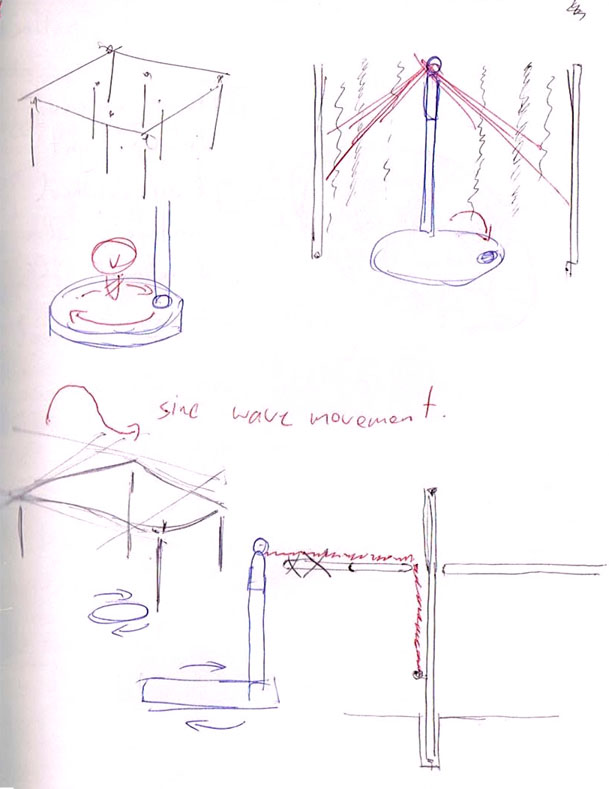 sine wave movement.